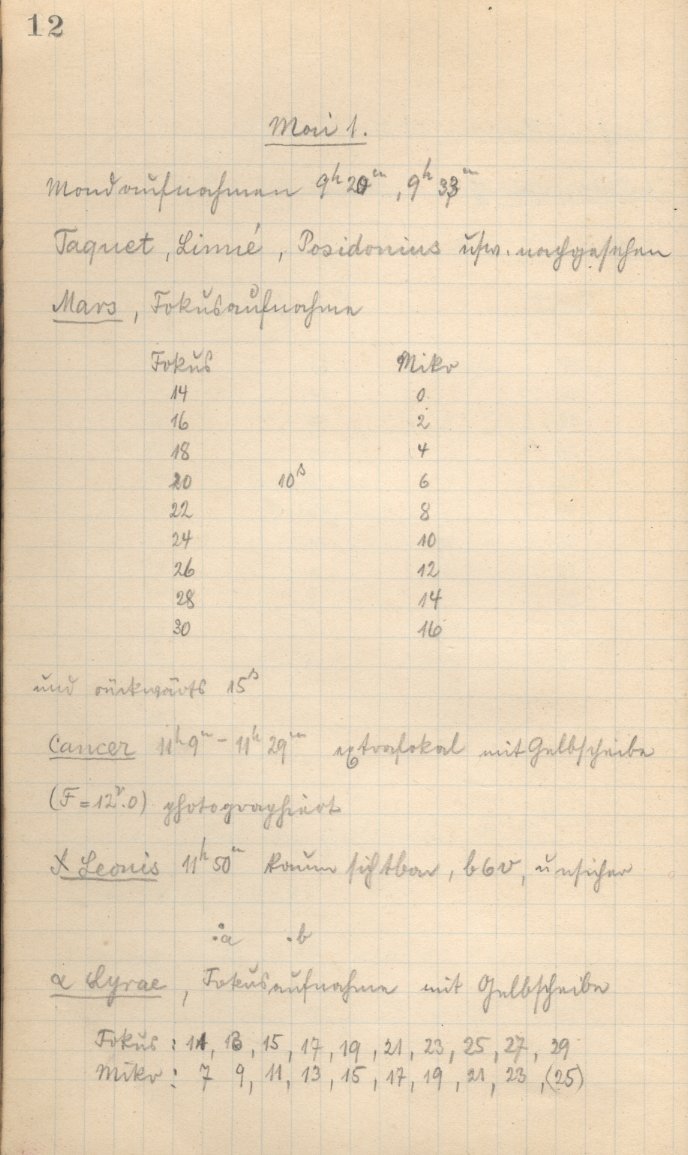 12
Mai 1.
Mondaufnahmen 9h 20m, 9h 33m
Taquet, Linné, Posidonius usw. nachgesehen
Mars, Fokusaufnahme
Fokus Mikr
14 0
16 2
18 4
20 10s 6
22 8
24 10
26 12
28 14
30 16
und rückwärts 15s
Cancer 11h 9m - 11h 29m extrafokal mit Gelbscheibe
(F = 12v.0) photographiert
X Leonis 11h 50m kaum sichtbar, b6v, unsicher
:a .b
α Lyrae, Fokusaufnahme mit Gelbscheibe
Fokus: 11, 13, 15, 17, 19, 21, 23, 25, 27, 29
Mikr: 7 9, 11, 13, 15, 17, 19, 21, 23, (25)